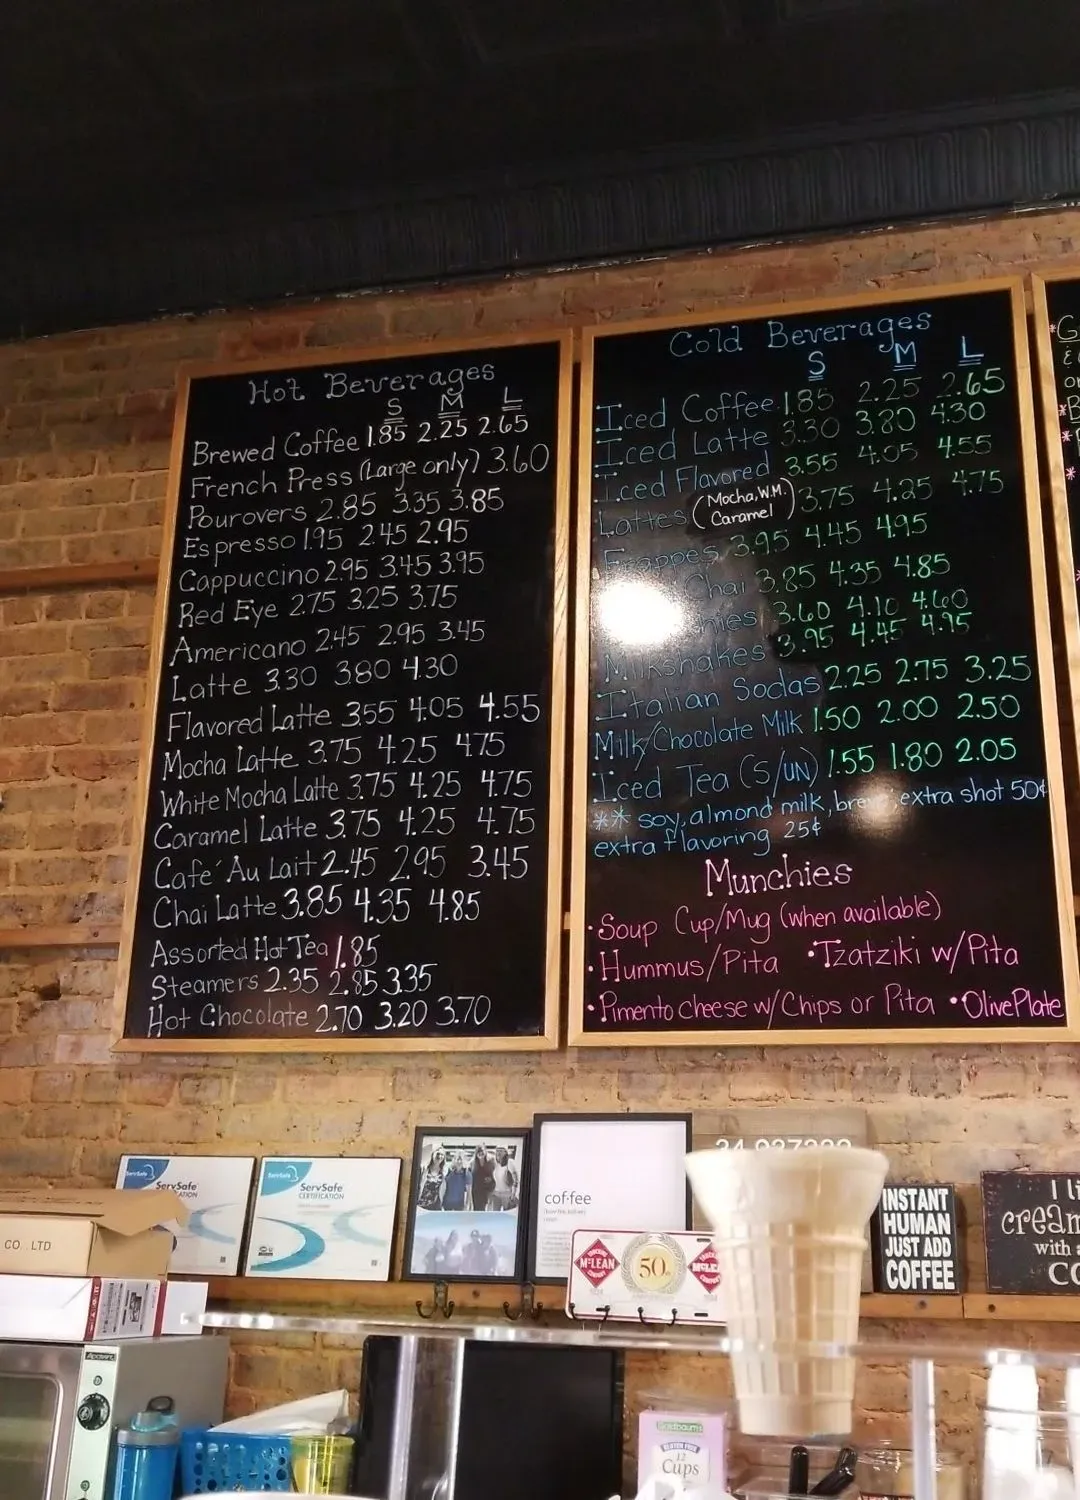 Hot Beverages
S M L
Brewed Coffee 1.85 2.25 2.65
French Press (Large only) 3.60
Pourovers 2.85 3.35 3.85
Espresso 1.95 2.45 2.95
Cappuccino 2.95 3.45 3.95
Red Eye 2.75 3.25 3.75
Americano 2.45 2.95 3.45
Latte 3.30 3.80 4.30
Flavored Latte 3.55 4.05 4.55
Mocha Latte 3.75 4.25 4.75
White Mocha Latte 3.75 4.25 4.75
Caramel Latte 3.75 4.25 4.75
Café Au Lait 2.45 2.95 3.45
Chai Latte 3.85 4.35 4.85
Assorted Hot Tea 1.85
Steamers 2.35 2.85 3.35
Hot Chocolate 2.70 3.20 3.70
Cold Beverages
S M L
Iced Coffee 1.85 2.25 2.65
Iced Latte 3.30 3.80 4.30
Iced Flavored 3.55 4.05 4.55
Lattes (Mocha, W.M. Caramel) 3.75 4.25 4.75
Frappes 3.95 4.45 4.95
Chai 3.85 4.35 4.85
3.60 4.10 4.60
Milkshakes 3.95 4.45 4.95
Italian Sodas 2.25 2.75 3.25
Milk/Chocolate Milk 1.50 2.00 2.50
Iced Tea (S/UN) 1.55 1.80 2.05
** soy, almond milk, extra shot 50¢
extra flavoring 25¢
Munchies
• Soup Cup/Mug (when available)
• Hummus/Pita • Tzatziki w/Pita
• Pimento cheese w/Chips or Pita • Olive Plate
ServSafe
ServSafe
CERTIFICATION
cof·fee
McLEAN
50
INSTANT
HUMAN
JUST ADD
COFFEE
cream
with a
CO., LTD
GLUTEN FREE
12
Cups